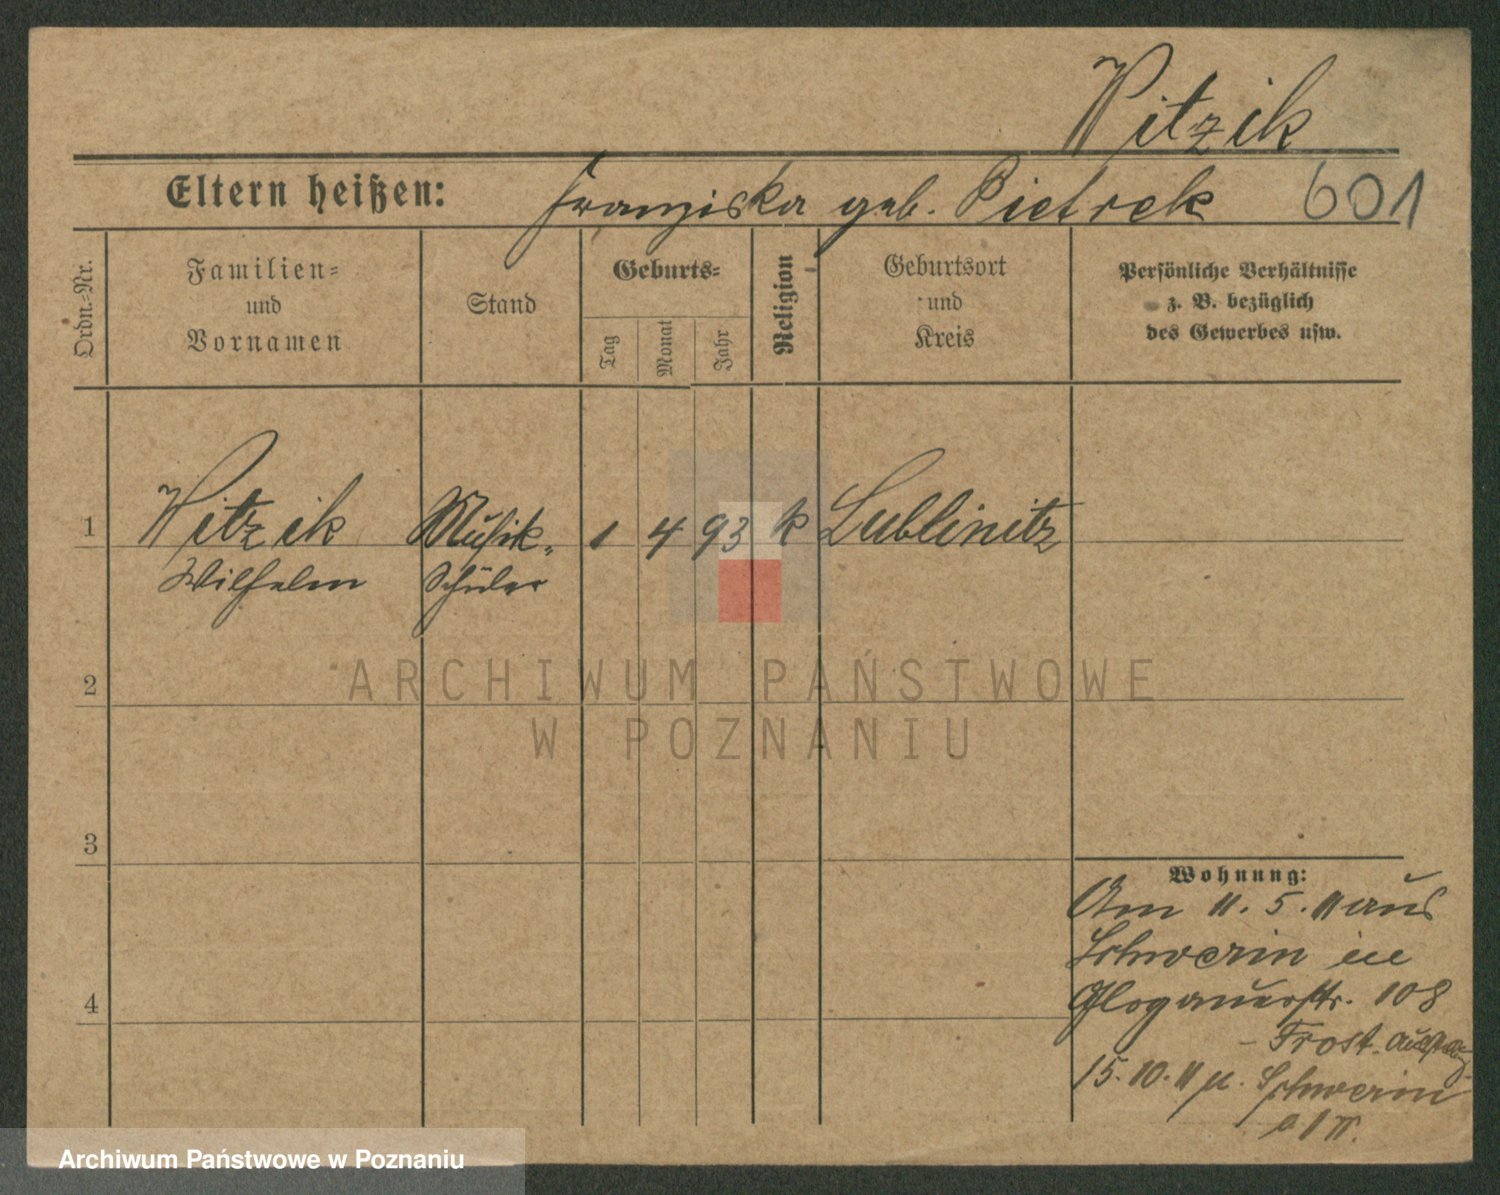 Witzik
Eltern heißen: Franziska geb. Pietrek 601
Ordn.=Nr.
Familien=
und
Vornamen
Stand
Geburts=
Tag
Monat
Jahr
Religion
Geburtsort
und
Kreis
Persönliche Verhältnisse
z. B. bezüglich
des Gewerbes usw.
1 Witzik Musik= 1 4 93 k Lublinitz
Wilhelm Schüler
2
ARCHIWUM PAŃSTWOWE
W POZNANIU
3
Wohnung:
Am 11. 5. 11 aus
Schwerin in
Glogauerstr. 108
- Frost.
15. 10. 11 n. Schwerin
a/W.
4
Archiwum Państwowe w Poznaniu